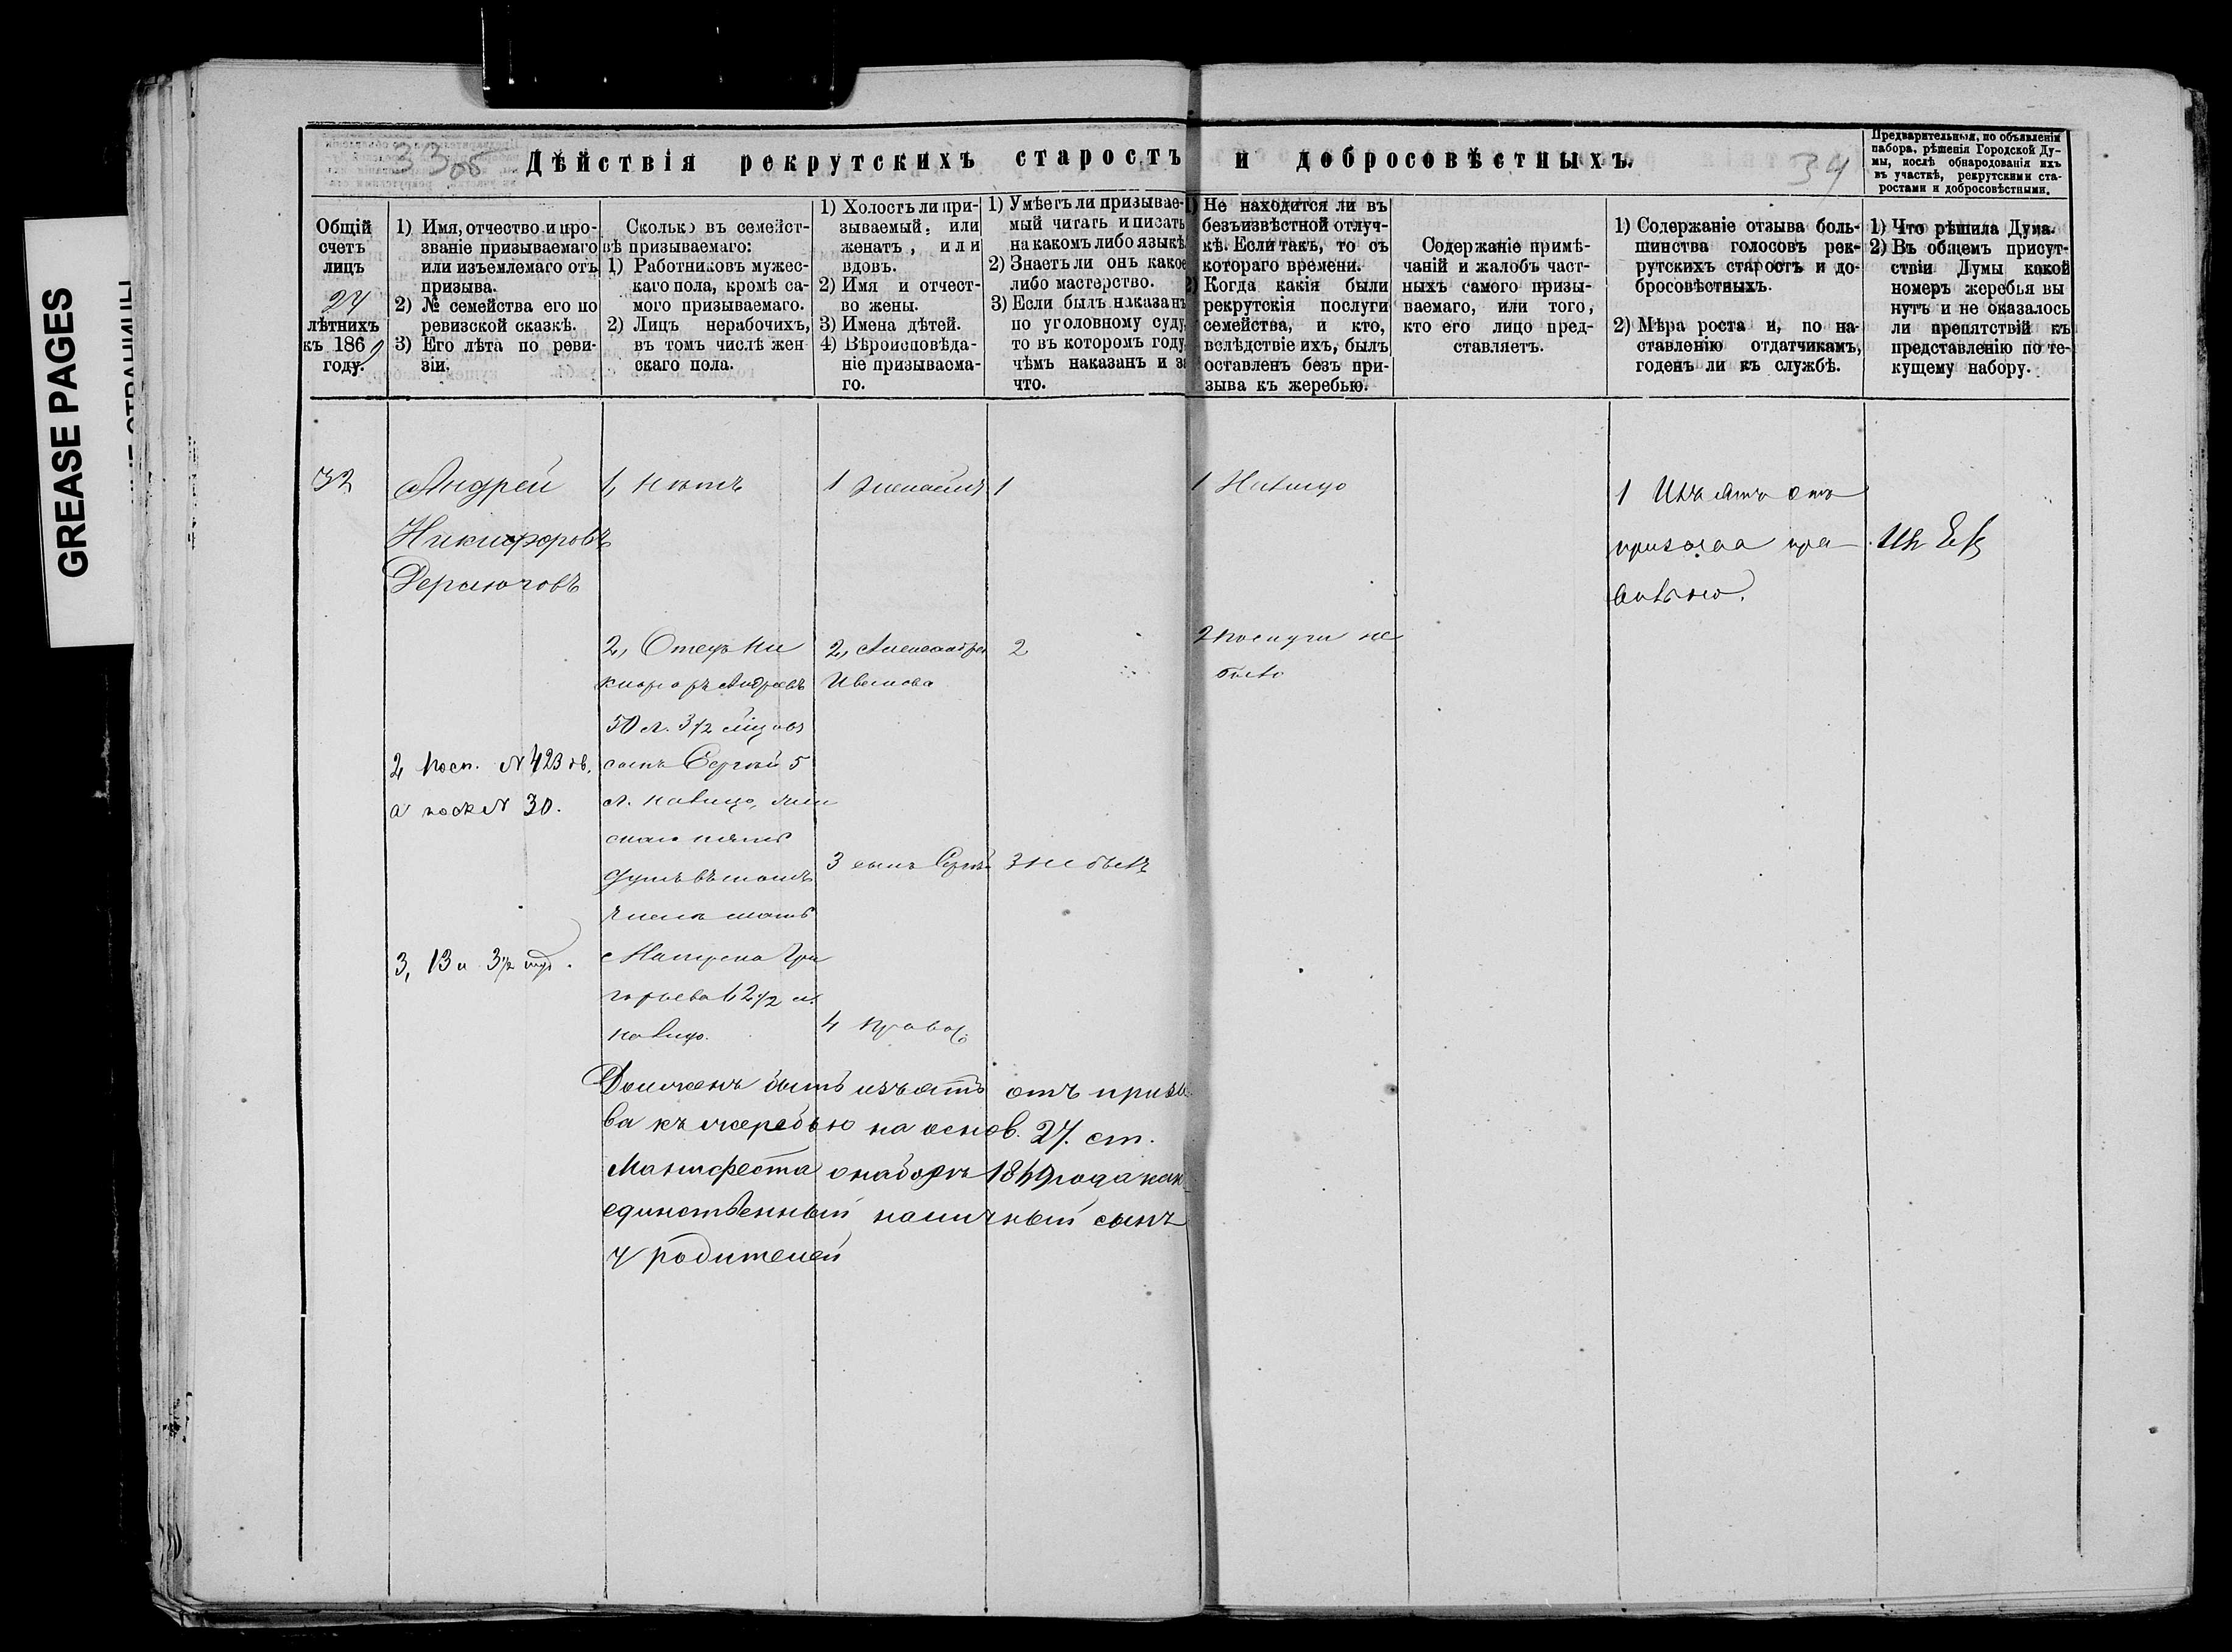 GREASE PAGES
33об
Дѣйствія рекрутскихъ старостъ и добросовѣстныхъ.
34
Предварительныя, по объявленіи
набора, рѣшенія Городской Ду-
мы, послѣ обнародованія ихъ
въ участкѣ, рекрутскими ста-
ростами и добросовѣстными.
Общій
счетъ
лицъ
27
лѣтнихъ
къ 1869
году.
1) Имя, отчество и про-
званіе призываемаго
или изъемлемаго отъ
призыва.
2) № семейства его по
ревизской сказкѣ.
3) Его лѣта по реви-
зіи.
Сколько въ семейст-
вѣ призываемаго:
1) Работниковъ мужес-
каго пола, кромѣ са-
мого призываемаго.
2) Лицъ нерабочихъ,
въ томъ числѣ жен
скаго пола.
1) Холостъ ли при-
зываемый, или
женатъ, или
вдовъ.
2) Имя и отчест-
во жены.
3) Имена дѣтей.
4) Вѣроисповѣда-
ніе призываема-
го.
1) Умѣетъ ли призывае-
мый читать и писать
на какомъ либо языкѣ
2) Знаетъ ли онъ какое
либо мастерство.
3) Если былъ наказанъ
по уголовному суду,
то въ которомъ году,
чѣмъ наказанъ и за
что.
1) Не находится ли въ
безъизвѣстной отлуч-
кѣ. Если такъ, то съ
котораго времени.
2) Когда какія были
рекрутскія послуги
семейства, и кто,
вслѣдствіе ихъ, былъ
оставленъ безъ при-
зыва къ жеребью.
Содержаніе примѣ-
чаній и жалобъ част-
ныхъ самого призы-
ваемаго, или того,
кто его лицо пред-
ставляетъ.
1) Содержаніе отзыва боль-
шинства голосовъ рек-
рутскихъ старостъ и до-
бросовѣстныхъ.
2) Мѣра роста и, по на-
ставленію отдатчикамъ,
годенъ ли къ службѣ.
1) Что рѣшила Дума.
2) Въ общемъ присут-
ствіи Думы какой
номеръ жеребья вы
нутъ и не оказалось
ли препятствій къ
представленію по те-
кущему набору.
32
Андрей
Никифоровъ
1, нѣтъ
1 женатъ
1
1 Налицо
1 Изъятъ отъ
призыва пра-
вильно.
2, Отецъ Ни
кифоръ Андреевъ
50 л. 3½
сынъ Сергѣй 5
л. налицо, жен
скаго пять
душъ въ томъ
числѣ мать
Гри
горьева 42½ л.
налицо.
2, Александра
Иванова
2
2 послуги не
было
2, посл. № 423
а 30.
3 сынъ Сергѣй
3 не былъ
3, 13 и 3½
4 Правос.
Долженъ быть изъятъ отъ призы
ва къ жеребью на основ. 27. ст.
Манифеста о наборѣ 1869 года как
единственный наличный сынъ
у родителей